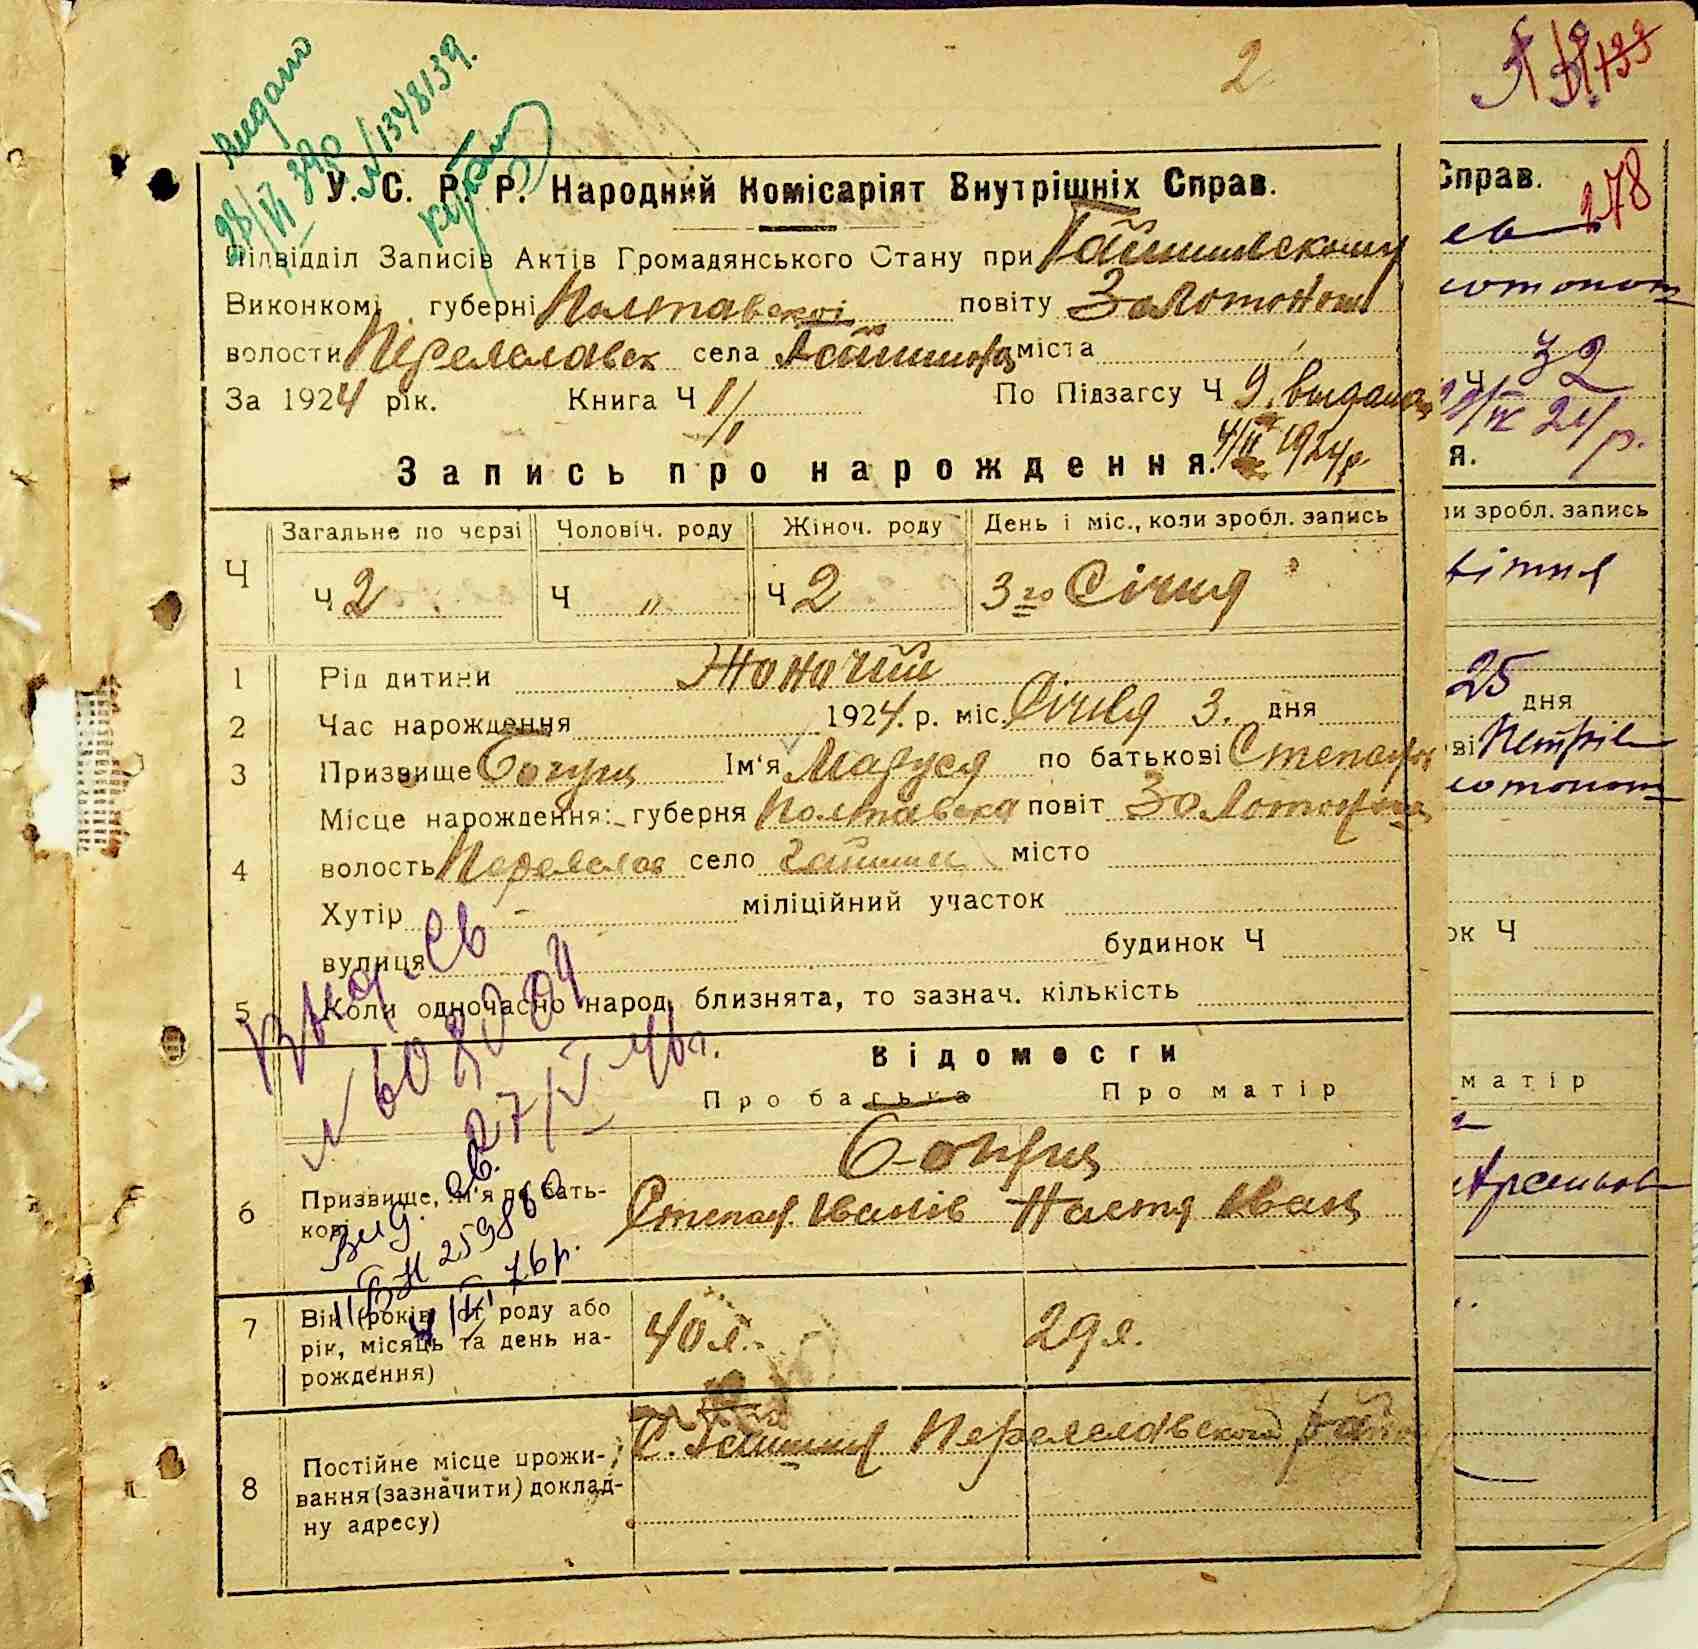 2
Видано
28/VI 39р
N 1348139.
У. С. Р. Р. Народний Комісаріят Внутрішніх Справ.
Підвідділ Записів Актів Громадянського Стану при Гайшинскому
Виконкомі губерні Полтавскоі повіту Золотонош
волости Переяславск села Гайшин міста
За 1924 рік. Книга Ч 1 По Підзагсу Ч 9.
1924р.
Запись про нарождення.
Ч Загальне по черзі Чоловіч. роду Жіноч. роду День і міс., коли зробл. запись
Ч 2 Ч " Ч 2 3го Січня
1 Рід дитини Жоночий
2 Час нарождення 1924. р. міс. Січня 3. дня
3 Призвище Ім'я Маруся по батькові
4 Місце нарождення: губерня Полтавска повіт Золотоноша
волость Переяслав село Гайшин місто
Хутір - міліційний участок
вулиця будинок Ч
5 Коли одночасно народ. близнята, то зазнач. кількість
N 608004
27/V 46г.
Відомости
Про батька Про матір
6 Призвище, ім'я по батькові
Степан Іванів Настя Іван
Вид. св.
259880
76р.
7 Вік (років від роду або рік, місяць та день нарождення) 40л. 29л.
8 Постійне місце прожи-
вання (зазначити) доклад-
ну адресу)
С. Гайшин Переяславского
133
Справ.
278
Ч 32
24р.
я.
ли зробл. запись
25 дня
ві Петрів
ок Ч
матір